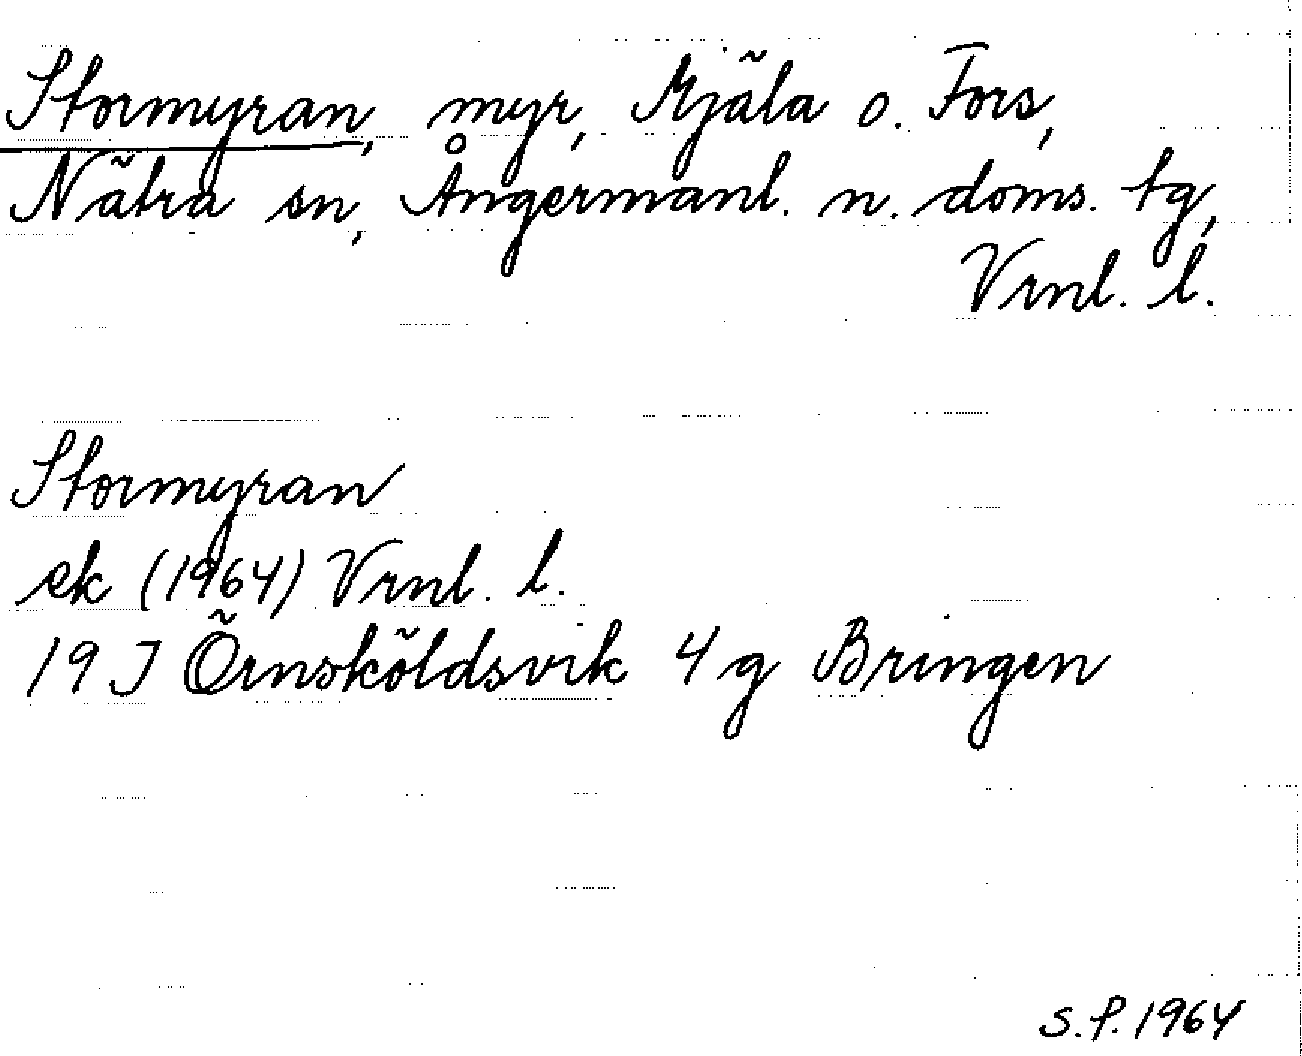 Stormyran, myr, Mjäla o. Fors,
Nätra sn, Ångermanl. n. doms. tg,
Vrnl. l.
Stormyran
ek (1964) Vrnl. l.
19 J Örnsköldsvik 4 g Bringen
S.P. 1964